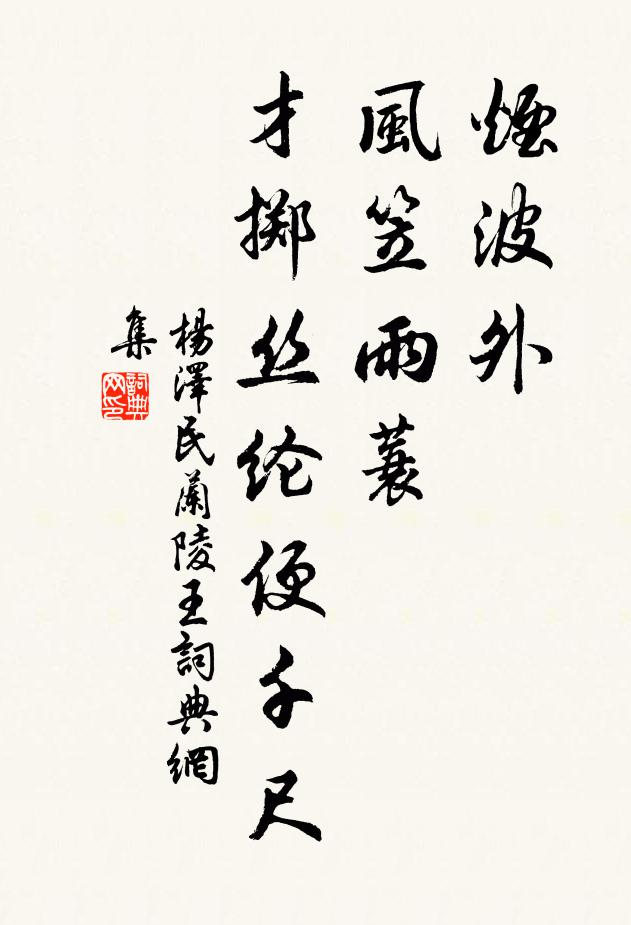 煙波外
風笠雨蓑
才掷丝纶便千尺
楊澤民蘭陵王詞典網
集
詞典网印